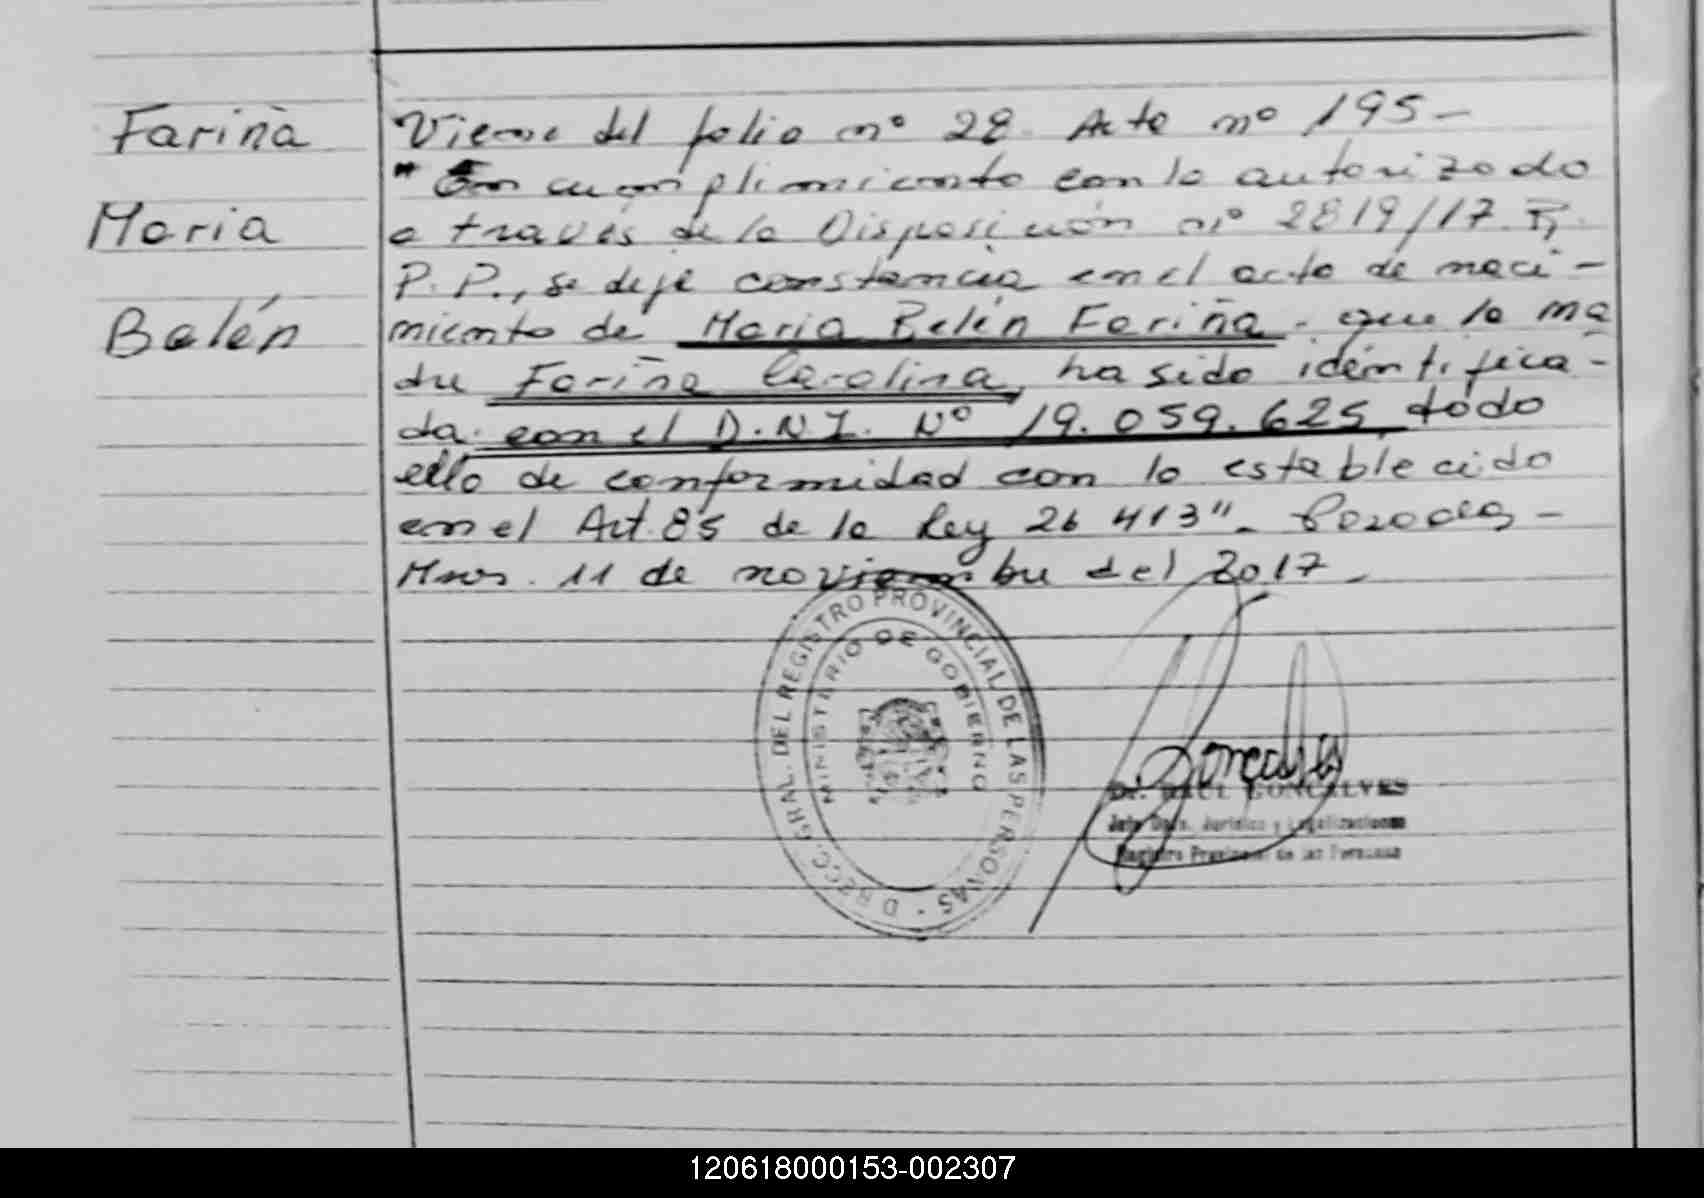 Fariña
Maria
Belén
Viene del folio nº 28. Acta nº 195-
"En cumplimiento con lo autorizado
a través de la Disposición nº 2819/17. R.
P.P., se deja constancia en el acta de naci-
miento de Maria Belén Fariña. que la ma
dre Fariña Carolina, ha sido identifica-
da con el D.N.I. Nº 19.059.625, todo
ello de conformidad con lo establecido
en el Art. 85 de la Ley 26 413". Posadas-
Mnes. 11 de noviembre del 2017.
DIRECC. GRAL. DEL REGISTRO PROVINCIAL DE LAS PERSONAS
MINISTERIO DE GOBIERNO
Dr. RAUL GONCALVES
Jefe Dpto. Jurídico y Legalizaciones
Registro Provincial de las Personas
120618000153-002307